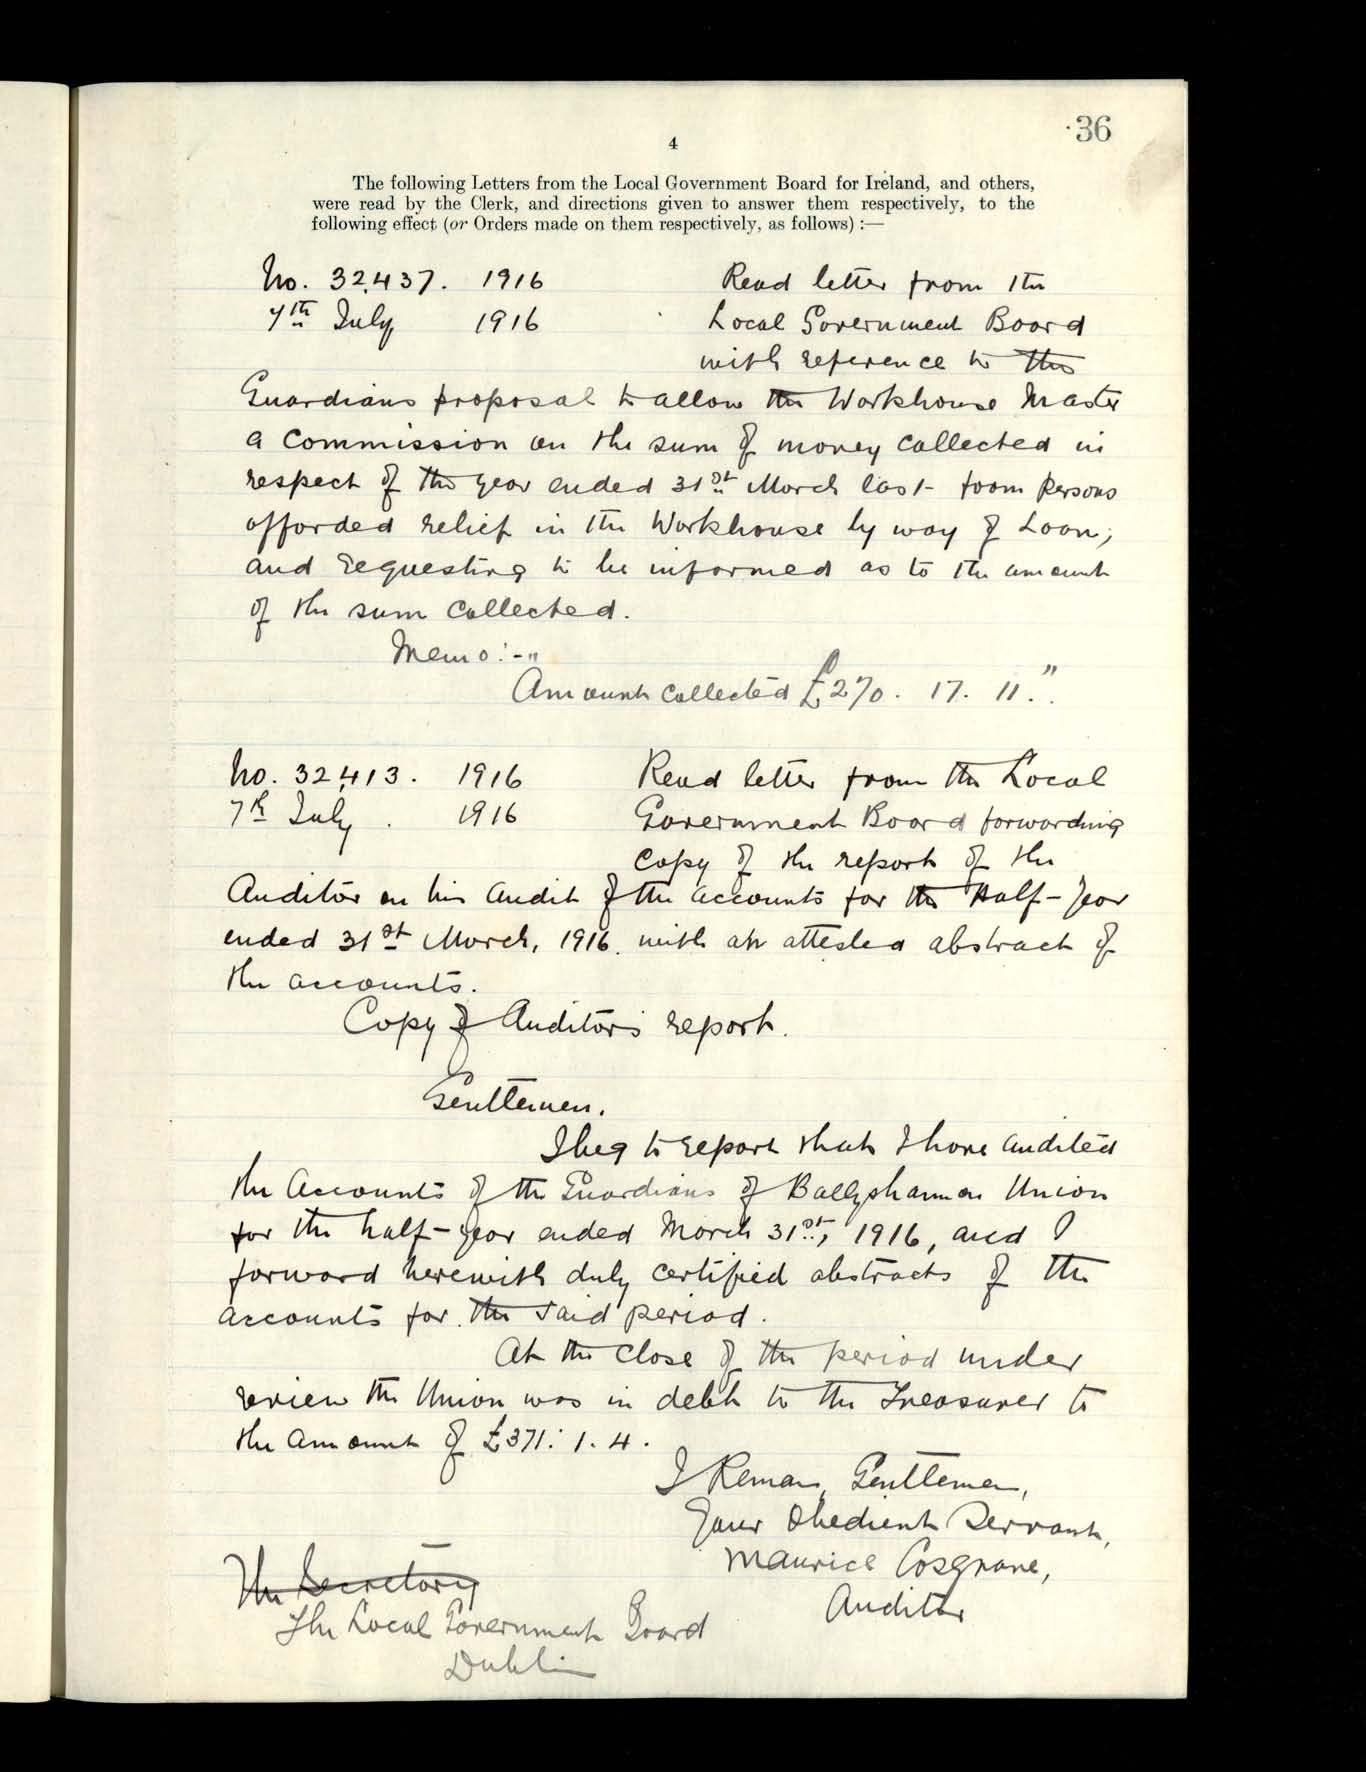 36
4
The following Letters from the Local Government Board for Ireland, and others,
were read by the Clerk, and directions given to answer them respectively, to the
following effect (or Orders made on them respectively, as follows) :—
No. 32,437. 1916 Read letter from the
7th July 1916 Local Government Board
with reference to the
Guardians proposal to allow the Workhouse Master
a Commission on the sum of money collected in
respect of the year ended 31st March last from persons
afforded relief in the Workhouse by way of Loan;
and requesting to be informed as to the amount
of the sum collected.
Memo:-"
Amount collected £270. 17. 11.".
No. 32,413. 1916 Read letter from the Local
7th July. 1916 Government Board forwarding
copy of the report of the
Auditor on his Audit of the accounts for the Half-Year
ended 31st March, 1916. with an attested abstract of
the accounts.
Copy of Auditor's report.
Gentlemen.
I beg to report that I have audited
the Accounts of the Guardians of Ballyshannon Union
for the half-year ended March 31st, 1916, and I
forward herewith duly certified abstracts of the
accounts for the said period.
At the close of the period under
review the Union was in debt to the Treasurer to
the amount of £371: 1. 4.
I Remain, Gentlemen,
Your Obedient Servant,
Maurice Cosgrave,
Auditor
The Secretary
The Local Government Board
Dublin